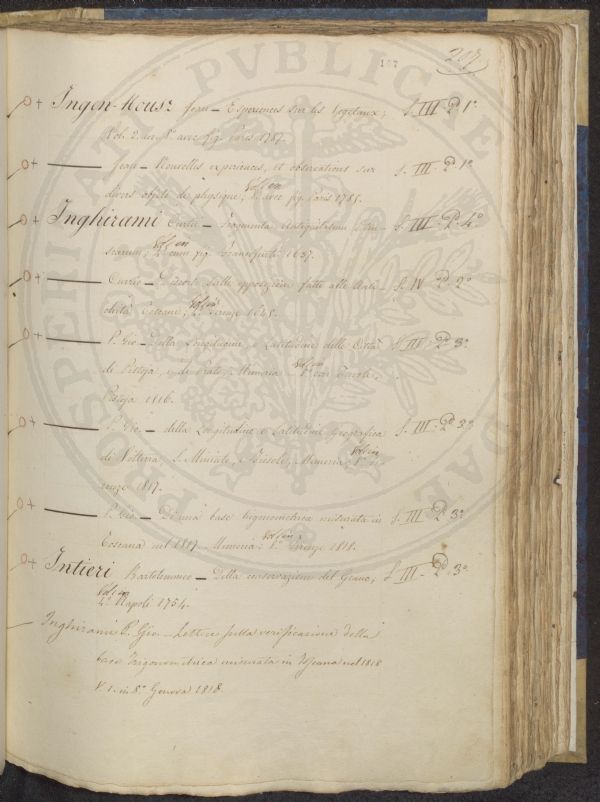 207
107
Ingen-Housz Jean — Experiences sur les Vegetaux; S. III P. 1º
Vol. 2 in 8º avec fig. Paris 1787.
——— Jean — Nouvelles experiences, et observations sur S. III P. 1º
divers objets de physique; Vol. in 8º avec fig. Paris 1785.
Inghirami Curtii — Fragmenta Antiquitatum Etru- S. III P. 4º
scarum; Vol. in 4º cum fig. Francofurti 1637.
——— Curzio — Discorso sulle opposizioni fatte alle Anti- S. IV P. 2º
chità Toscane; Vol. in 4º Firenze 1645.
——— P. Gio — Della Longitudine, e Latitudine delle Città S. III P. 3º
di Pistoja, e di Prato; Memoria Vol. in 8º con Tavole;
Pistoja 1816.
——— P. Gio — della Longitudine e Latitudine Geografica S. III P. 3º
di Volterra, S. Miniato, e Fiesole; Memoria; Vol. in 8º Fi-
renze 1817.
——— P. Gio — Di una base trigonometrica misurata in S. III P. 3º
Toscana nel 1817 Memoria; Vol. in 8º Firenze 1818.
Intieri Bartolommeo — Della conservazione del Grano; S. III P. 3º
Vol. in 4º Napoli 1754.
Inghirami P. Gio. — Lettere sulla verificazione della
base Trigonometrica misurata in Toscana nel 1818
V. 1. in 8º Genova 1818.
PROSPERITATI PUBLICAE AUGENDAE